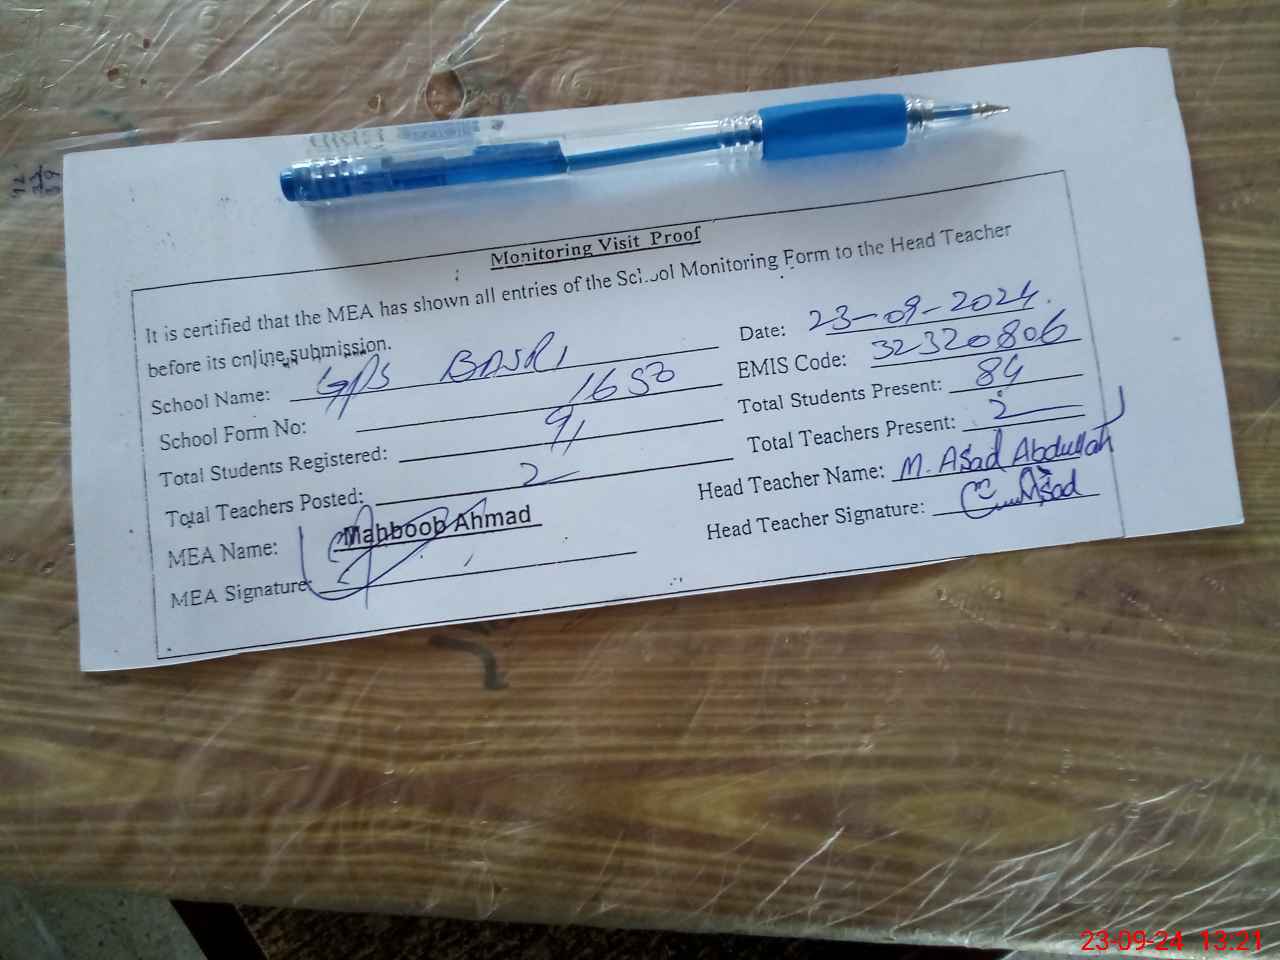 Monitoring Visit Proof
It is certified that the MEA has shown all entries of the School Monitoring Form to the Head Teacher
before its online submission.
Date: 23-09-2024.
School Name: GPS BASRI
EMIS Code: 32320806
School Form No: 1650
Total Students Present: 84
Total Students Registered: 91
Total Teachers Present: 2
Total Teachers Posted: 2
Head Teacher Name: M. Asad Abdullah
MEA Name: Mahboob Ahmad
Head Teacher Signature: Asad
MEA Signature:
23-09-24 13:21